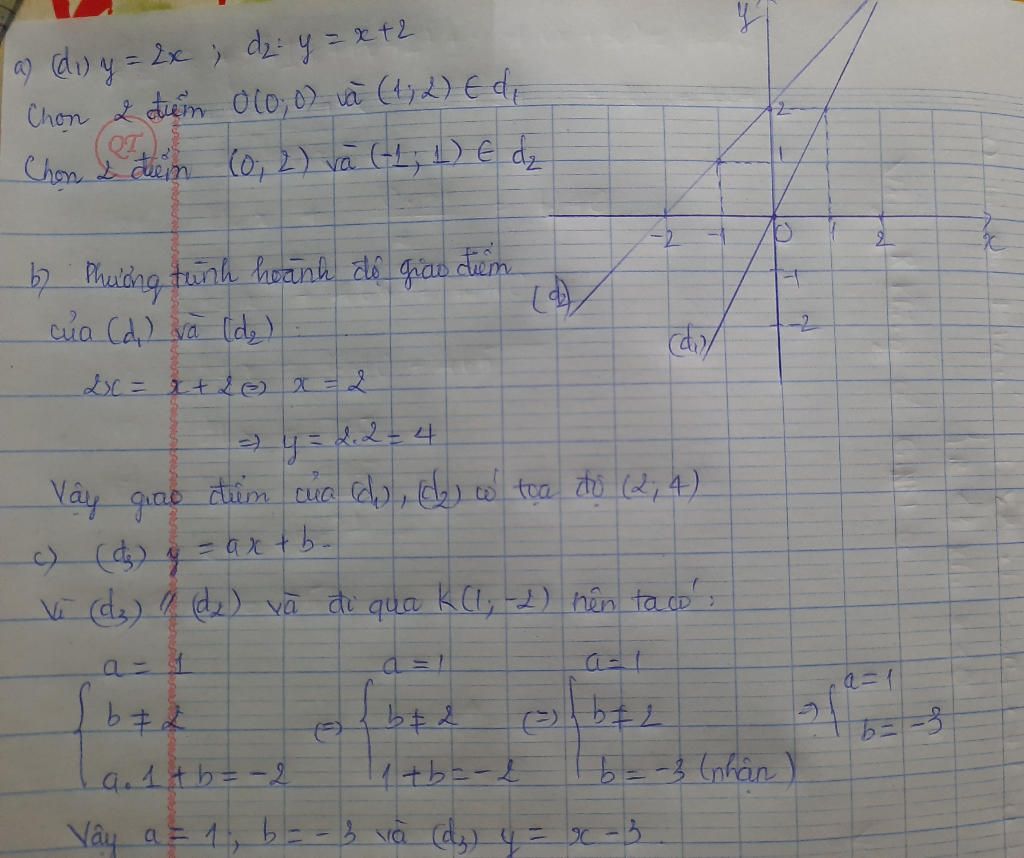 a) (d₁) y = 2x ; d₂: y = x+2
Chọn 2 điểm O(0;0) và (1;2) ∈ d₁
QT
Chọn 2 điểm (0;2) và (-1;1) ∈ d₂
y
2
1
-2 -1 0 1 2 x
-1
-2
(d₂)
(d₁)
b) Phương trình hoành độ giao điểm
của (d₁) và (d₂)
2x = x + 2 ⇔ x = 2
⇒ y = 2.2 = 4
Vậy giao điểm của (d₁), (d₂) có tọa độ (2;4)
c) (d₃) y = ax + b.
Vì (d₃) // (d₂) và đi qua K(1;-2) nên ta có:
{ a = 1 ⇔ { a = 1 ⇔ { a = 1 ⇒ { a = 1
b ≠ 2 b ≠ 2 b ≠ 2 b = -3
a.1 + b = -2 1 + b = -2 b = -3 (nhận)
Vậy a = 1; b = -3 và (d₃) y = x - 3.